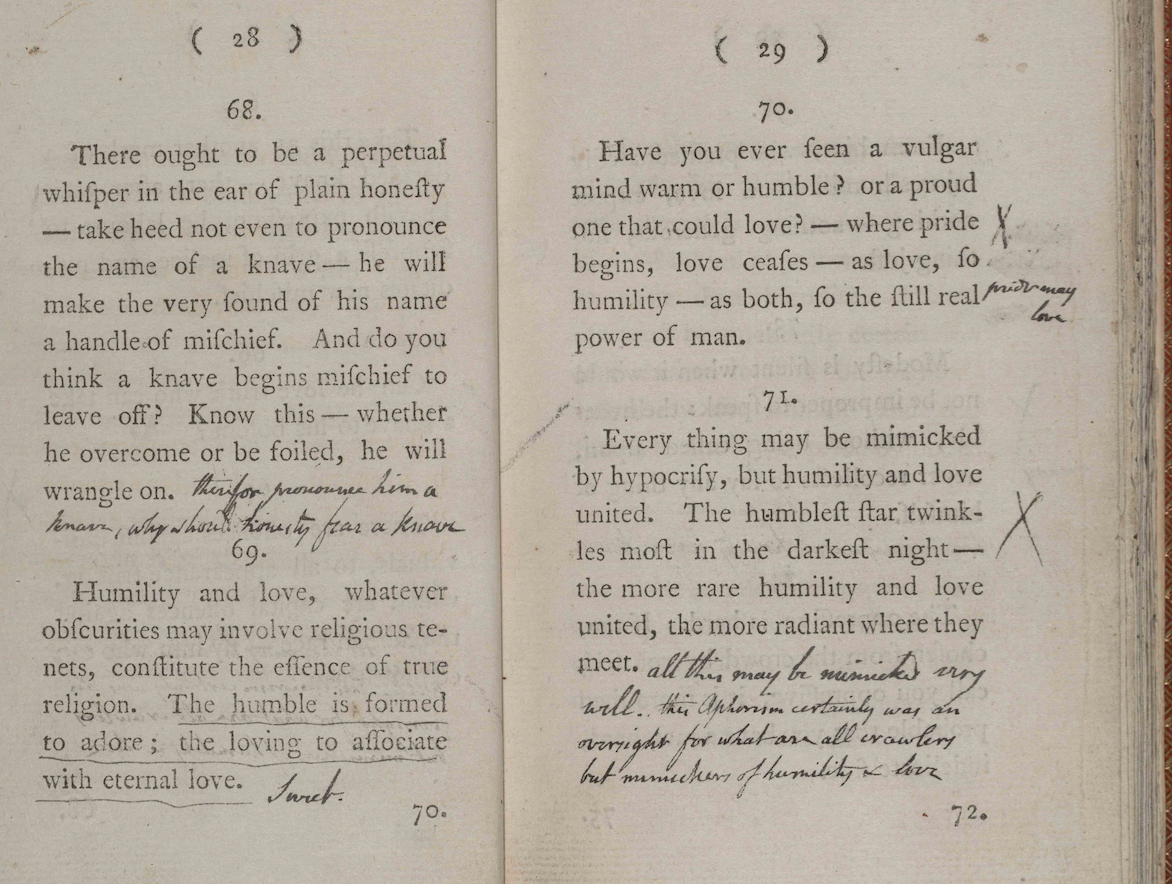 ( 28 )
68.
There ought to be a perpetual
whiſper in the ear of plain honeſty
— take heed not even to pronounce
the name of a knave — he will
make the very ſound of his name
a handle of miſchief. And do you
think a knave begins miſchief to
leave off? Know this — whether
he overcome or be foiled, he will
wrangle on. therefor pronounce him a
knave, why should honesty fear a knave
69.
Humility and love, whatever
obſcurities may involve religious te-
nets, conſtitute the eſſence of true
religion. The humble is formed
to adore; the loving to aſſociate
with eternal love. Sweet.
70.
( 29 )
70.
Have you ever ſeen a vulgar
mind warm or humble? or a proud
one that could love? — where pride X
begins, love ceaſes — as love, ſo
humility — as both, ſo the ſtill real pride may
love
power of man.
71.
Every thing may be mimicked
by hypocriſy, but humility and love
united. The humbleſt ſtar twink- X
les moſt in the darkeſt night —
the more rare humility and love
united, the more radiant where they
meet. all this may be mimicked very
well.. this Aphorism certainly was an
oversight for what are all crawlers
but mimickers of humility & love
72.